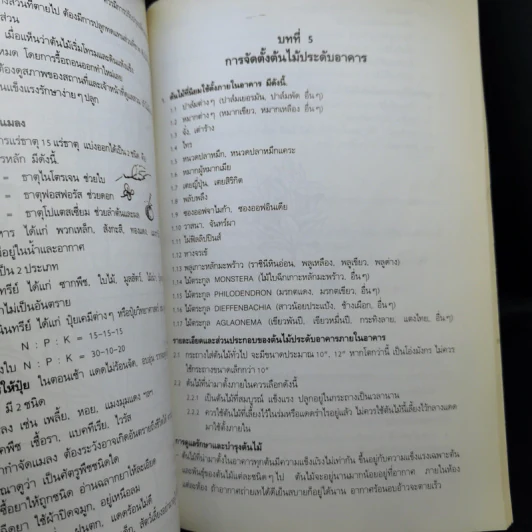 ส่วนที่ตายไป ต้องมีการปลูกทดแทนส่วนที่
ส่วน
เมื่อเห็นว่าต้นไม้เริ่มโทรมและกินแล้ว
หมด โดยการรื้อถอนออกทำใหม่เลย
ต้องดูสภาพของสถานที่และเจ้าหน้าที่ดูแล
แข็งแรงรักษาง่ายๆ ปลูก
แมลง
การแร่ธาตุ 15 แร่ธาตุ แบ่งออกได้เป็น 2 ชนิด คือ
หลัก มีดังนี้
= ธาตุไนโตรเจน ช่วยใบ
= ธาตุฟอสฟอรัส ช่วยดอก
= ธาตุโปแตสเซี่ยม ช่วยลำต้นและผล
การ ได้แก่ พวกเหล็ก, สังกะสี, ทองแดง
อยู่ในน้ำและอากาศ
เป็น 2 ประเภท
ทรีย์ ได้แก่ ซากพืช, ใบไม้, มูลสัตว์
ไม่เป็นอันตราย
นทรีย์ ได้แก่ ปุ๋ยเคมีต่างๆ หรือปุ๋ยวิทยาศาสตร์
N : P : K = 15-15-15
ใบ N : P : K = 30-10-20
ให้ปุ๋ย ในตอนเช้า แดดไม่ร้อนจัด
มี 2 ชนิด
ลง เช่น เพลี้ย, หอย, แมงมุมแดง ฯลฯ
พืช เชื้อรา, แบคทีเรีย, ไวรัส
กำจัดแมลง ต้องระวังอาจเกิดอันตราย
ณาดูว่า เป็นศัตรูพืชชนิดใด
ซื้อยาให้ถูกชนิด อ่านฉลากยาให้ละเอียด
ยา ใช้ผ้าปิดจมูก, อยู่เหนือลม
ฝนตก, แดดร้อนไม่ดี
บทที่ 5
การจัดตั้งต้นไม้ประดับอาคาร
1. ต้นไม้ที่นิยมใช้ตั้งภายในอาคาร มีดังนี้.
1.1 ปาล์มต่างๆ (ปาล์มเยอรมัน, ปาล์มพัด อื่นๆ)
1.2 หมากต่างๆ (หมากเขียว, หมากเหลือง อื่นๆ)
1.3 จั๋ง, เต่าร้าง
1.4 ไทร
1.5 หนวดปลาหมึก, หนวดปลาหมึกแคระ
1.6 หมากผู้หมากเมีย
1.7 เตยญี่ปุ่น, เตยสิริกิต
1.8 พลับพลึง
1.9 ซองออฟจาไมก้า, ซองออฟอินเดีย
1.10 วาสนา, จันทร์ผา
1.11 ไผ่ฟิลลิปปินส์
1.12 หางจรเข้
1.13 พลูเกาะหลักมะพร้าว (ราชินีหินอ่อน, พลูเหลือง, พลูเขียว, พลูด่าง)
1.14 ไม้ตระกูล MONSTERA (ไม้ใบฉีกเกาะหลักมะพร้าว, อื่นๆ)
1.15 ไม้ตระกูล PHILODENDRON (มรกตแดง, มรกตเขียว, อื่นๆ)
1.16 ไม้ตระกูล DIEFFENBACHIA (สาวน้อยประแป้ง, ช้างเผือก, อื่นๆ)
1.17 ไม้ตระกูล AGLAONEMA (เขียวพันปี, เขียวหมื่นปี, กระทิงลาย, แตงไทย, อื่นๆ)
รายละเอียดและส่วนประกอบของต้นไม้ประดับอาคารภายในอาคาร
2.1 กระถางใส่ต้นไม้ทั่วไป จะมีขนาดประมาณ 10", 12" หากโตกว่านี้ เป็นโอ่งมังกร ไม่ควร
ใช้กระถางขนาดเล็กกว่า 10"
2.2 ต้นไม้ที่นำมาตั้งภายในควรเลือกดังนี้
2.2.1 เป็นต้นไม้ที่สมบูรณ์ แข็งแรง ปลูกอยู่ในกระถางเป็นเวลานาน
2.2.2 ควรใช้ต้นไม้ที่เลี้ยงไว้ในร่มหรือแดดรำไรอยู่แล้ว ไม่ควรใช้ต้นไม้นี้เลี้ยงไว้กลางแดด
มาใช้ตั้งภายใน
การดูแลรักษาและบำรุงต้นไม้
ต้นไม้ที่นำมาตั้งในอาคารทุกต้นมีความแข็งแรงไม่เท่ากัน ขึ้นอยู่กับความแข็งแรงเฉพาะต้น
และพันธุ์ของต้นไม้แต่ละชนิดๆ ไป ต้นไม้จะอยู่นานมากน้อยอยู่ที่อากาศ ภายในห้อง
แต่ละห้อง ถ้าอากาศถ่ายเทได้ดีเย็นสบายก็อยู่ได้นาน อากาศร้อนอบอ้าวจะตายเร็ว